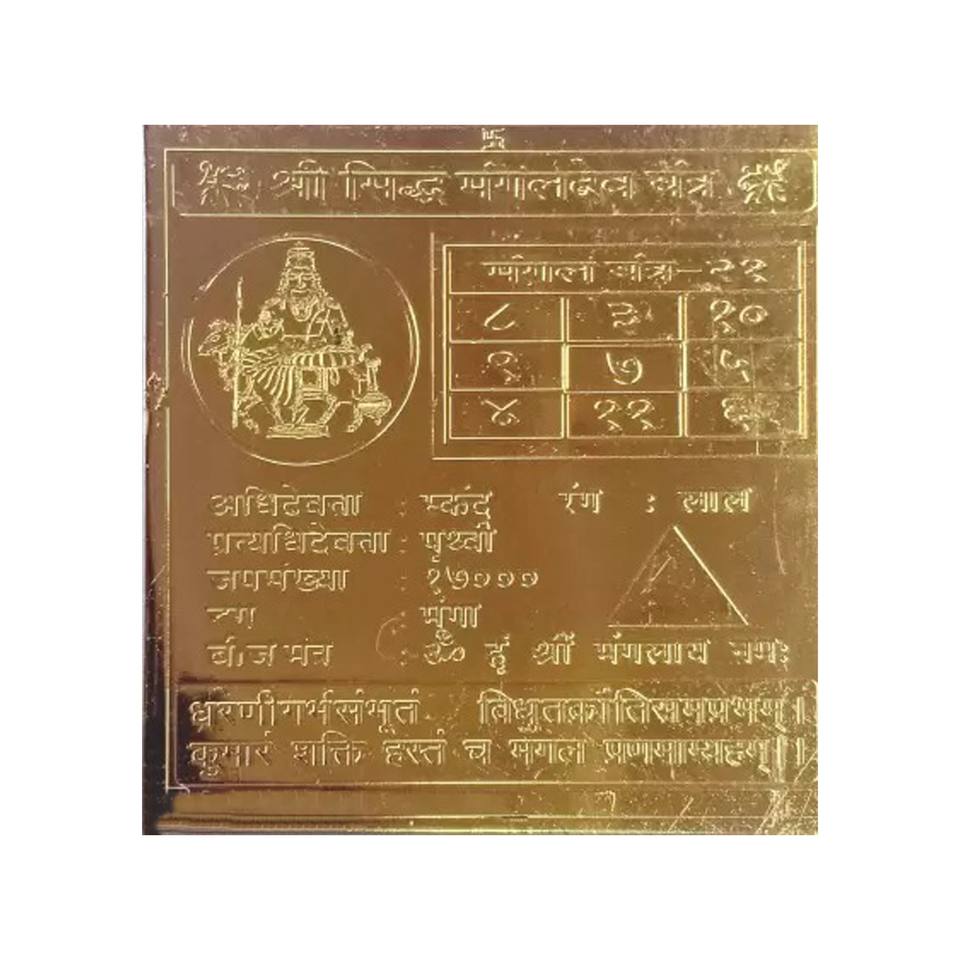 श्री सिद्ध मंगलदेव यंत्र
मंगल यंत्र-२१
८ ३ १०
९ ७ ५
४ ११ ६
अधिदेवता : स्कंद रंग : लाल
प्रत्यधिदेवता : पृथ्वी
जपसंख्या : १७०००
रग : मूंगा
बीज मंत्र : ॐ हृं श्रीं मंगलाय नमः
धरणीगर्भसंभूतं विधुतक्रांतिसमप्रभम्।
कुमारं शक्ति हस्तं च मंगलं प्रणमाम्यहम्।।